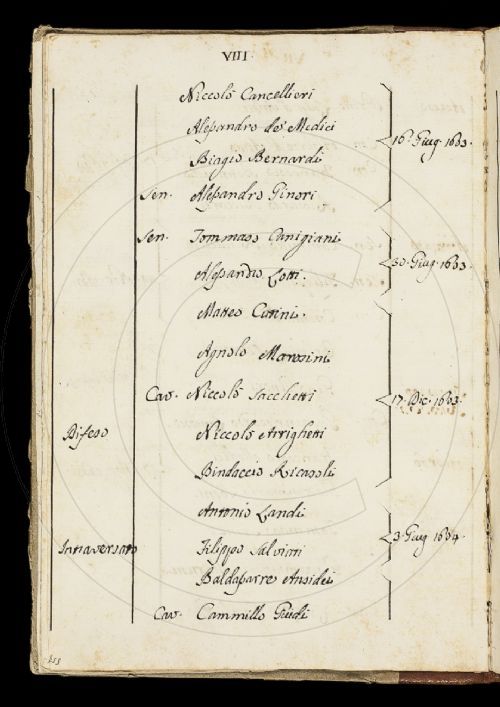 VIII.
Niccolò Cancellieri
Alessandro de' Medici
16. Giug. 1603.
Biagio Bernardi
Sen. Alessandro Ginori
Sen. Tommaso Canigiani
30. Giug. 1603.
Alessandro Lotti.
Matteo Cutini.
Agnolo Marosini
Cav. Niccolò Sacchetti
17. Dic. 1603.
Difeso Niccolò Arrighetti
Bindaccio Ricasoli
Antonio Landi
Intraversato Filippo Salviati
3. Giug. 1604.
Baldassarre Ansidei
Cav. Cammillo Guidi